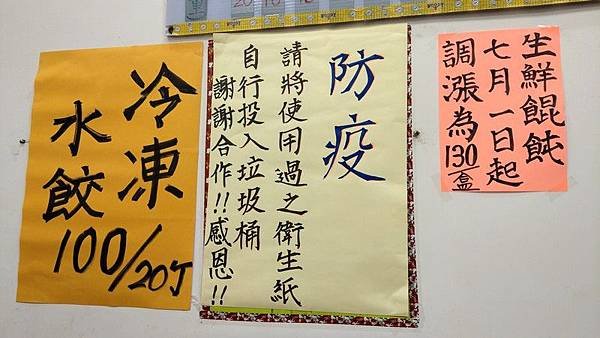 冷凍
水餃
100/20丁
防疫
請將使用過之衛生紙
自行投入垃圾桶
謝謝合作!!感恩!!
生鮮餛飩
七月一日起
調漲為130/盒